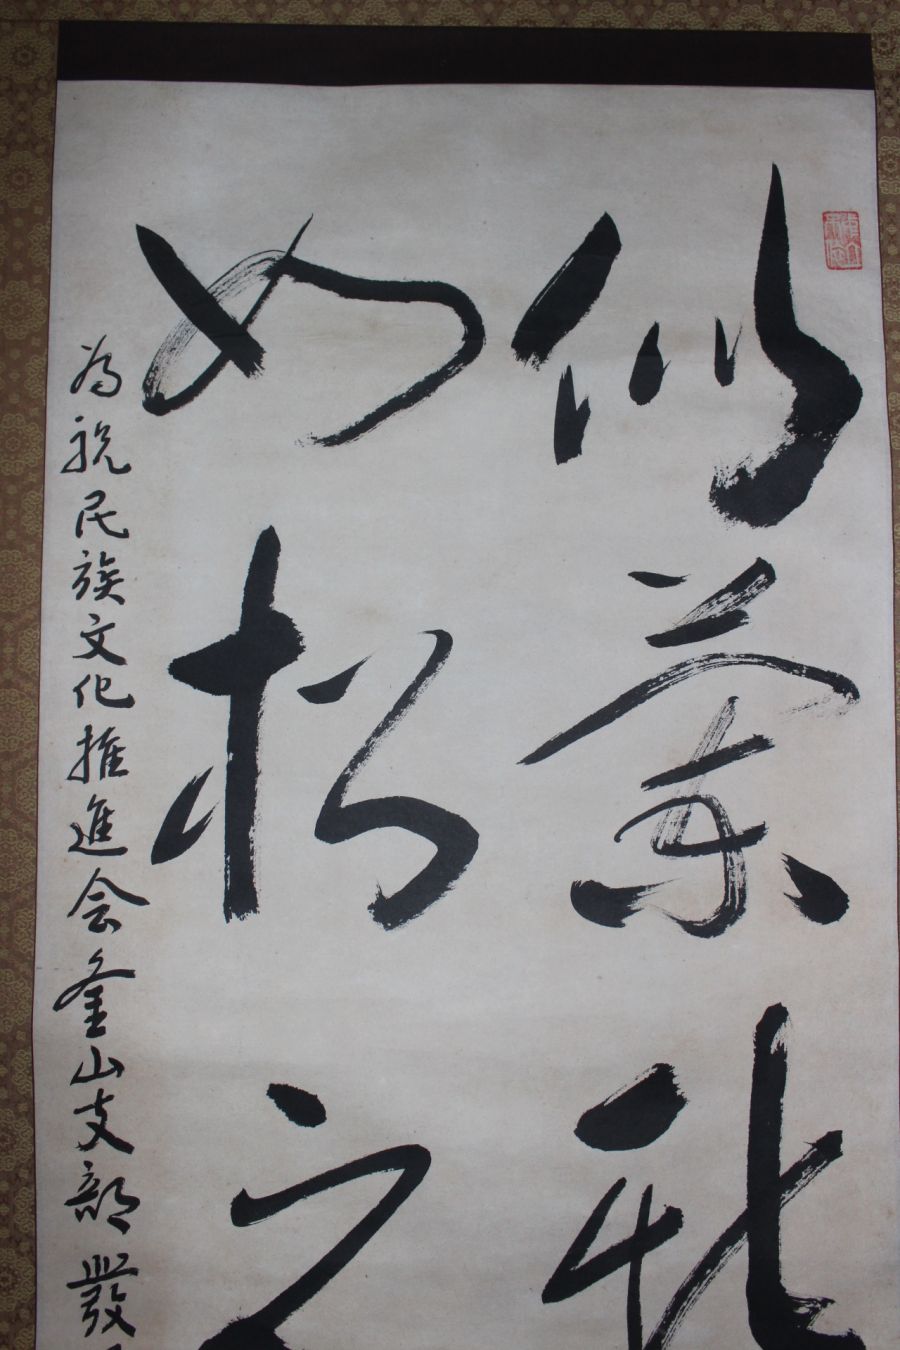 似蘭斯
如松之
為祝民族文化推進会釜山支部發